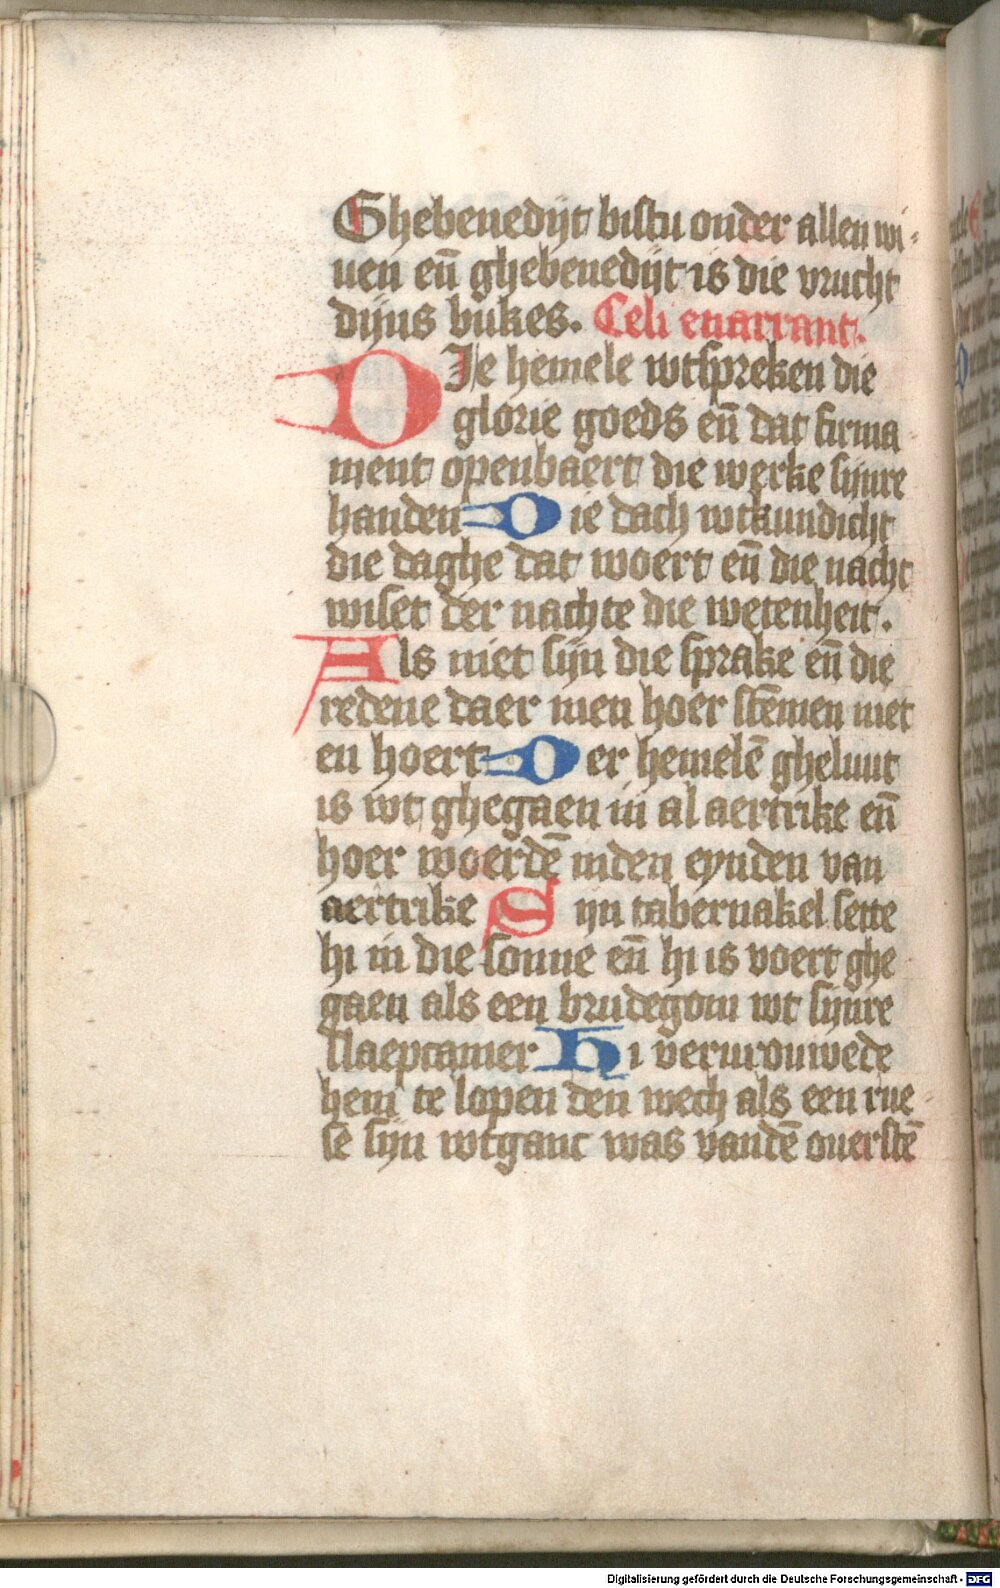 Ghebenedijt bistu onder allen wi-
uen en̄ ghebenedijt is die vrucht
dijns bukes. Celi enarrant.
DIe hemele wtspreken die
glorie goeds en̄ dat firma
ment openbaert die werke sijnre
handen Die dach wtkundicht
die daghe dat woert en̄ die nacht
wiset der nachte die wetenheit.
Als niet sijn die sprake en̄ die
redene daer men hoer stēmen niet
en hoert Der hemelē gheluut
is wt ghegaen in al aertrike en̄
hoer woerdē inden eynden van
aertrike Sijn tabernakel sette
hi in die sonne en̄ hi is voert ghe
gaen als een brudegom wt sijnre
slaepcamer Hi vervrouwede
hem te lopen den wech als een rue
se sijn wtganc was vandē ouerstē
Digitalisierung gefördert durch die Deutsche Forschungsgemeinschaft - DFG